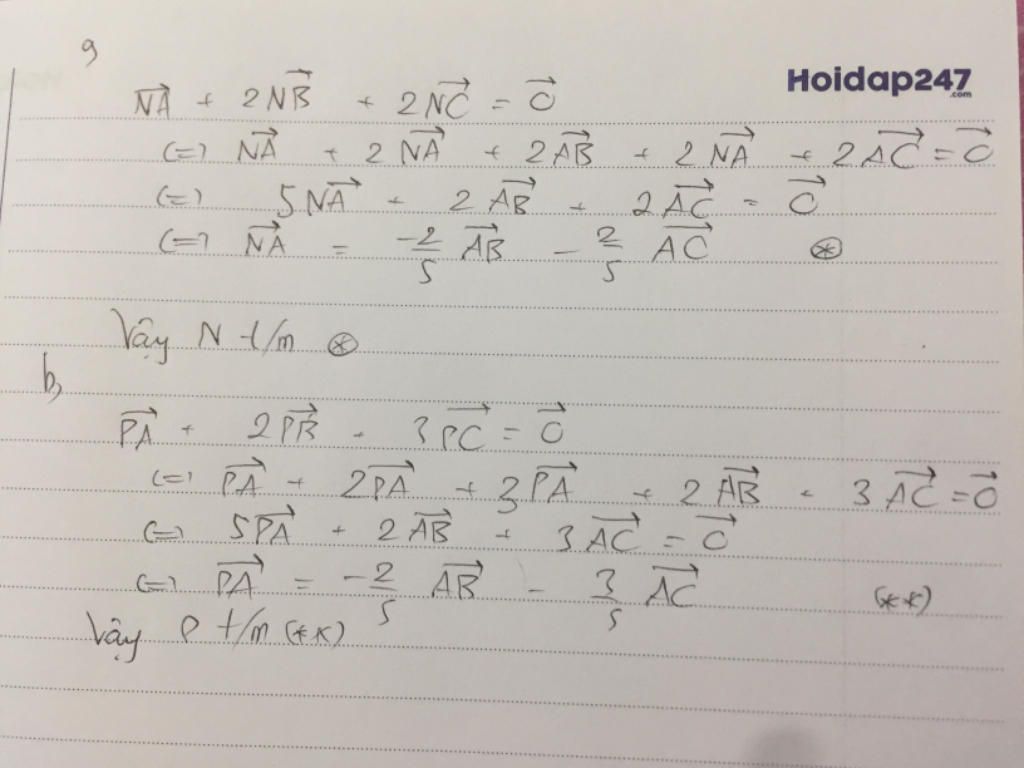 a
Hoidap247
.com
NA + 2NB + 2NC = 0
(=) NA + 2NA + 2AB + 2NA + 2AC = 0
(=) 5NA + 2AB + 2AC = 0
(=) NA = -2/5 AB - 2/5 AC ⊛
Vậy N t/m ⊛
b,
PA + 2PB + 3PC = 0
(=) PA + 2PA + 3PA + 2AB + 3AC = 0
(=) 5PA + 2AB + 3AC = 0
(=) PA = -2/5 AB - 3/5 AC (**)
Vậy P t/m (**)